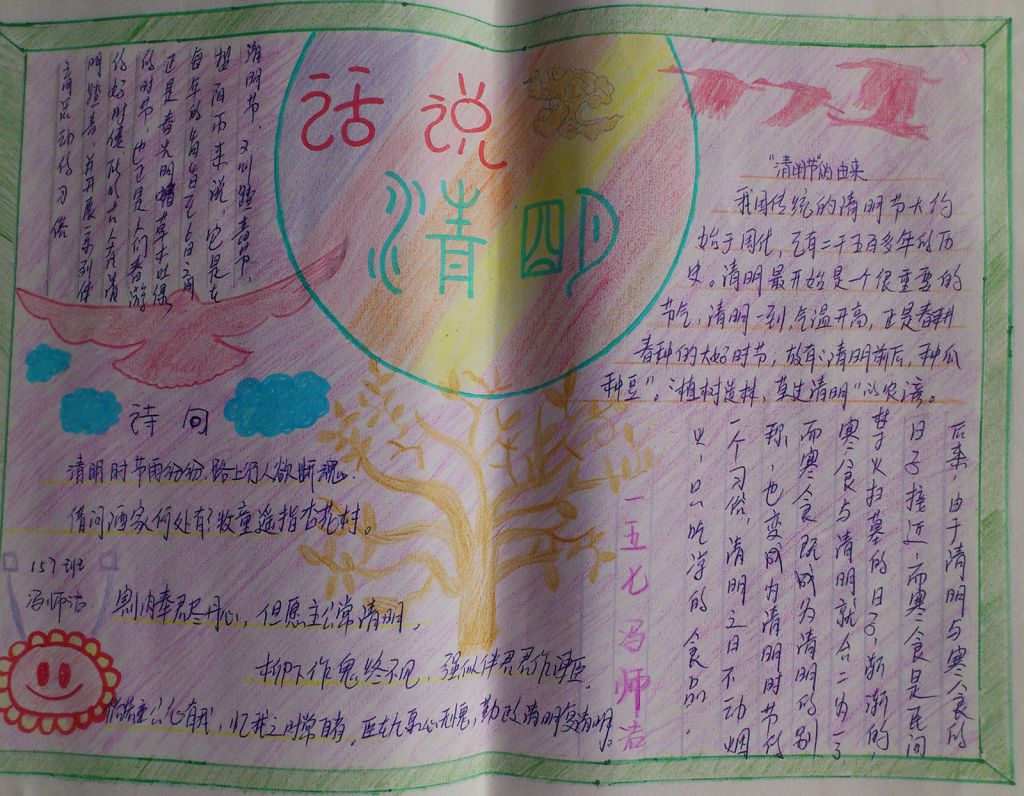 话说
清明
清明节，又叫踏青节，
按阳历来说，它是在
每年的4月4日至6日之间
正是春光明媚草木吐绿
的时节，也正是人们春游
的好时候所以古人有清
明踏青，并开展一系列体
育活动的习俗
"清明节"的由来
我国传统的清明节大约
始于周代，已有二千五百多年的历
史。清明最开始是一个很重要的
节气，清明一到，气温升高，正是春耕
春种的大好时节，故有："清明前后，种瓜
种豆"。"植树造林，莫过清明"的农谚。
后来，由于清明与寒食的
日子接近，而寒食是民间
禁火扫墓的日子，渐渐的，
寒食与清明就合二为一了，
而寒食既成为清明的别
称，也变成为清明时节的
一个习俗，清明之日不动烟
火，只吃凉的食品.
诗词
清明时节雨纷纷.路上行人欲断魂.
借问酒家何处有？牧童遥指杏花村。
157班
冯师洁
割肉奉君尽丹心，但愿主公常清明，
柳下作鬼终不见，强似伴君君作谏臣。
倘若主公心有我，忆我之时常自省，臣在九泉心无愧，勤政清明复清明。
一五七 冯师洁